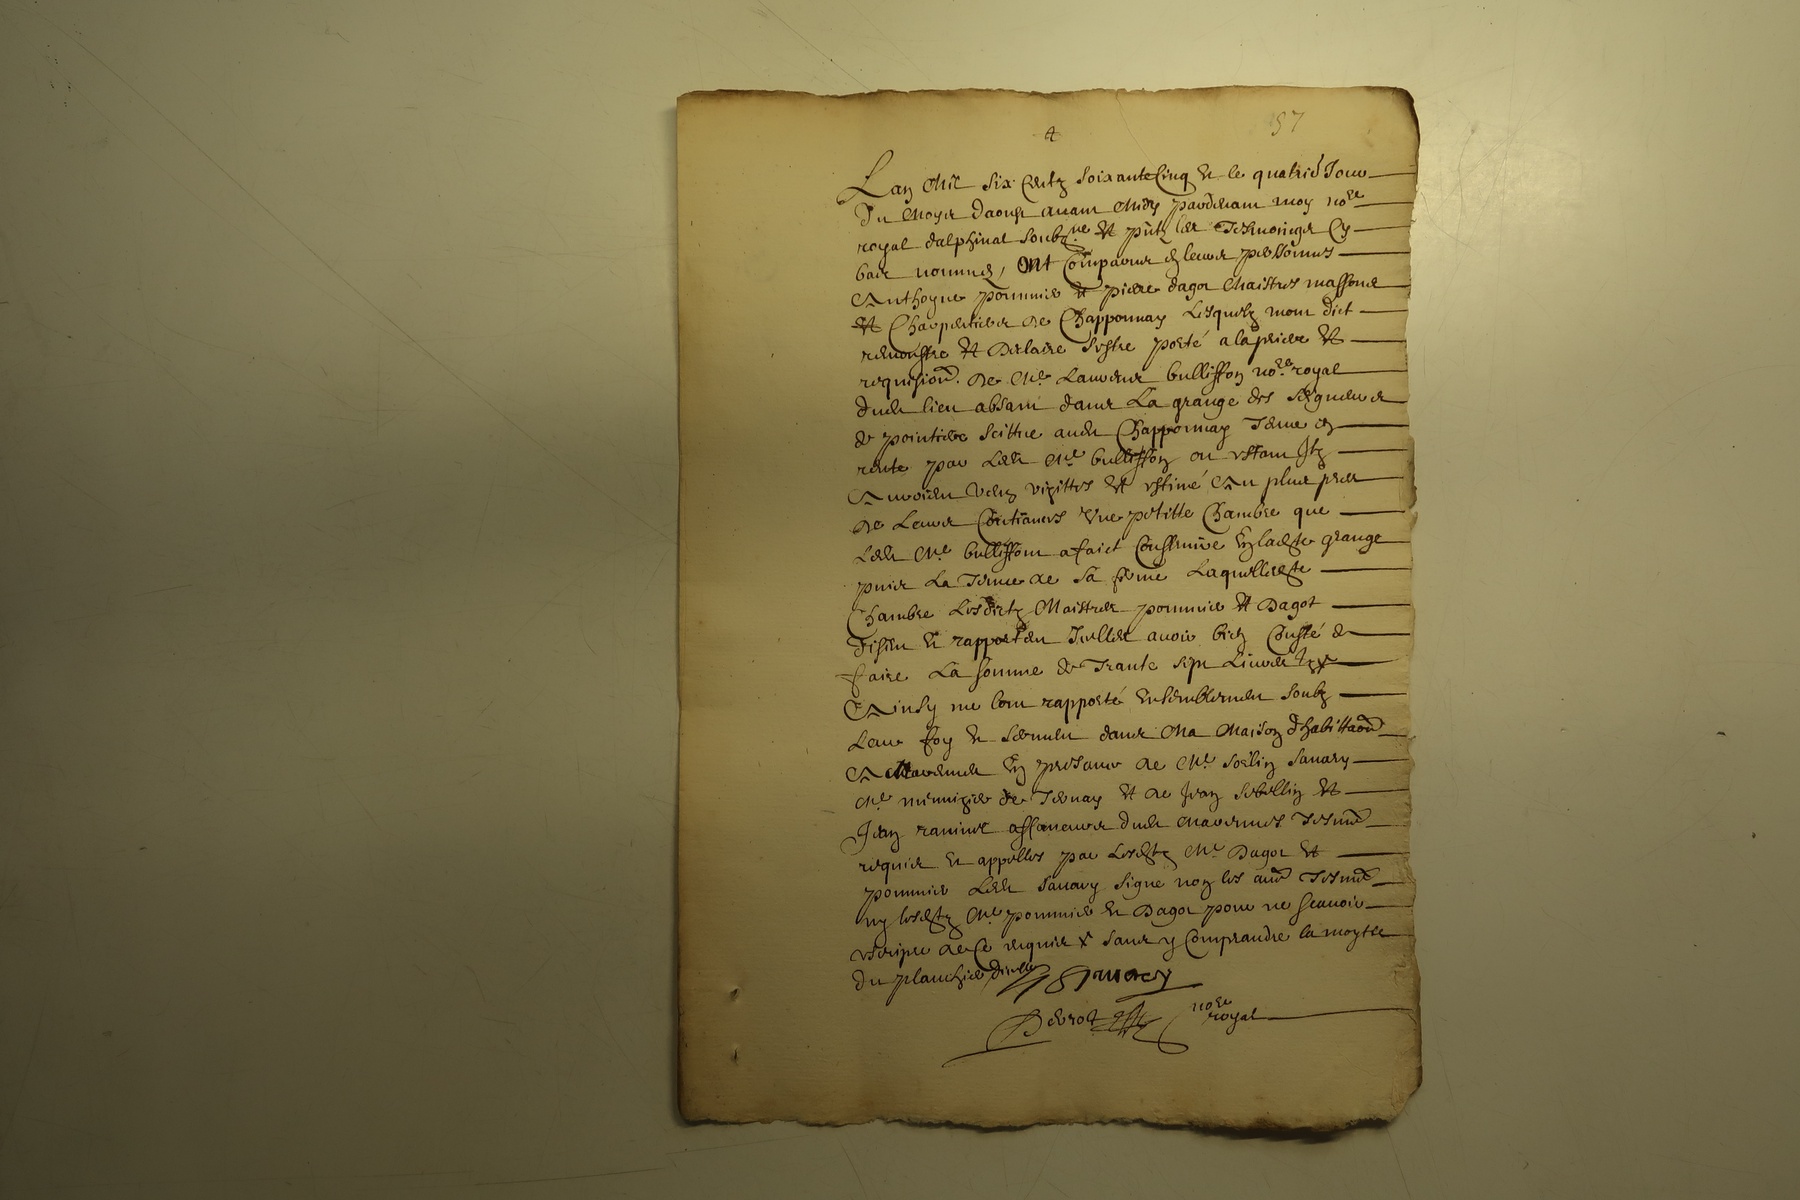 57
Lan Mil six centz soixante cinq et le quatrie Jour
Du Moys daoust avant Midy pardevant moy nore
royal dalphinal soubzne et pntz les Tesmoingz Cy
bas nommes, ont Comparus en leurs personnes
Anthoyne pommier et pierre dagot Maistres massons
et Charpentiers de Chapponnay Lesquelz mont dict
remonstre et declaire sestre porté a la priere et
requision. de Me Laurens bullisson nore royal
dudt lieu absant dans La grange des seigneurs
de pointiere scittue audt Chapponnay Tenue en
rente par Ledt Me bullisson ou estant Ilz
Auroient veu vizittes et estimé Au plus pres
de Leurs Contiances Une petitte Chambre que
Ledt Me bullisson a faict Construire en ladte grange
puis La Tenue de sa ferme Laquelle dte
Chambre Lesdictz Maistres pommier et Dagot
disent et rapportent Icelle avoir bien Cousté de
faire La somme de Trante sept Livres
Ainsy me lont rapporté ensemblement soubz
Leur foy et serment dans Ma Maison dhabittaon
A Marennes En presance de Me Savary
Me de Ternay et de Jean et
Jean affaneurs dudt Marennes Tesmoe
requis et appelles par Lesdtz Me Dagot et
pommier Ledt savary signe non les aues Tesmoe
ny lesdtz Me pommier et Dagot pour ne scavoir
escripre de Ce requis x sans y Comprandre la moytte
du planchier dicelle Savary
nore
royal